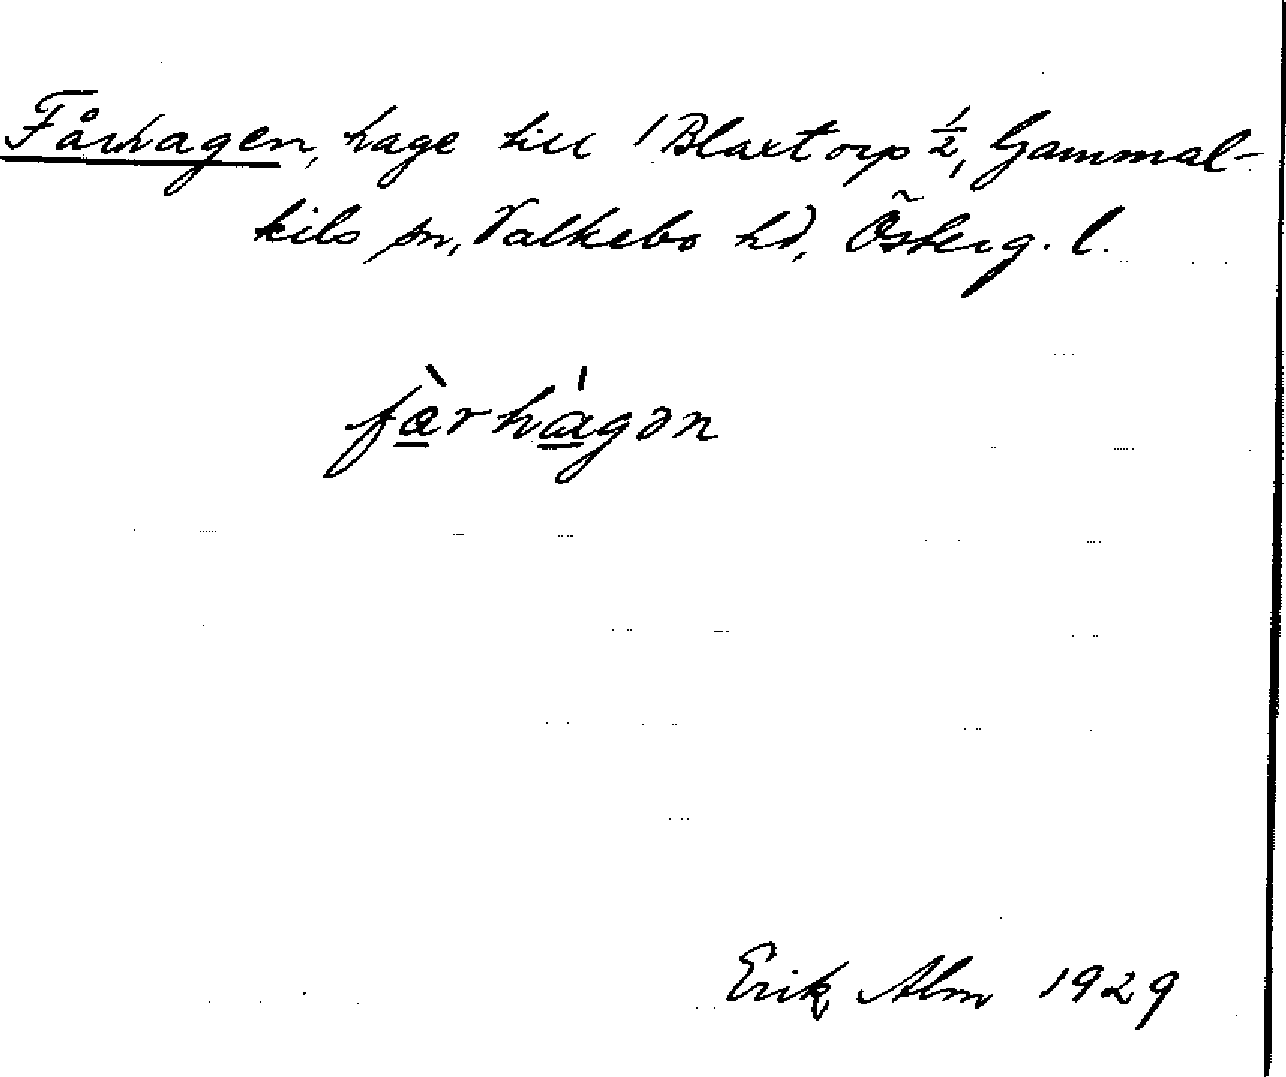 Fårhagen, hage till Blaxtorp ½, Gammal-
kils sn, Valkebo hd, Österg. l.
fàrhágən
Erik Alm 1929